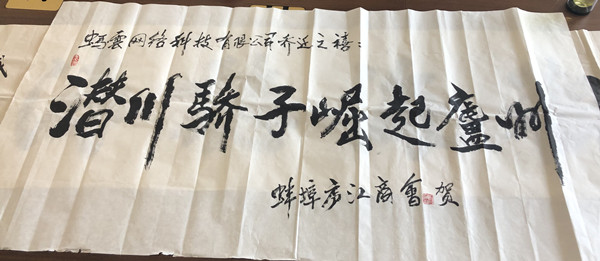 蚂雲网络科技有限公司乔迁之禧：
潜川骄子崛起廬州
蚌埠庐江商會贺